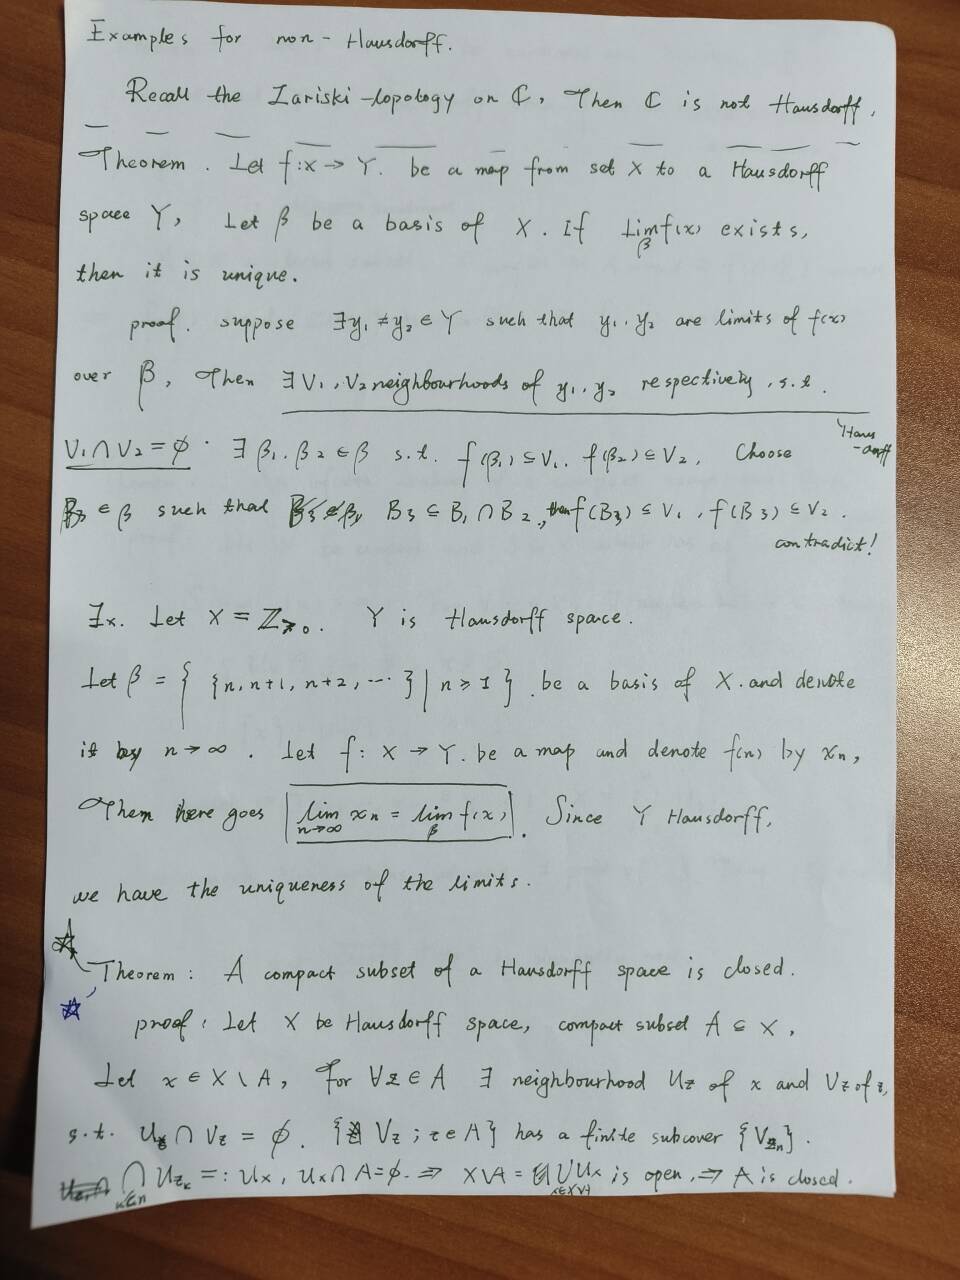 Examples for non-Hausdorff.
Recall the Zariski topology on ℂ, Then ℂ is not Hausdorff.
Theorem. Let f:X→Y. be a map from set X to a Hausdorff
space Y, Let β be a basis of X. If lim_β f(x) exists,
then it is unique.
proof. suppose ∃y₁≠y₂∈Y such that y₁, y₂ are limits of f(x)
over β, Then ∃V₁, V₂ neighbourhoods of y₁, y₂ respectively, s.t.
Haus-dorff
V₁∩V₂=∅. ∃β₁, β₂∈β s.t. f(β₁)⊆V₁, f(β₂)⊆V₂, Choose
B₃∈β such that B₃⊆B₁∩B₂, then f(B₃)⊆V₁, f(B₃)⊆V₂.
contradict!
Ex. Let X=ℤ_{>0}. Y is Hausdorff space.
Let β={ {n, n+1, n+2, ...} | n≥1 } be a basis of X. and denote
it by n→∞. Let f: X→Y. be a map and denote f(n) by xₙ,
Then here goes lim_{n→∞} xₙ = lim_β f(x). Since Y Hausdorff,
we have the uniqueness of the limits.
Theorem: A compact subset of a Hausdorff space is closed.
proof: Let X be Hausdorff space, compact subset A⊆X,
Let x∈X\A, For ∀z∈A ∃ neighbourhood U_z of x and V_z of z,
s.t. U_z∩V_z=∅. {V_z; z∈A} has a finite subcover {V_{z_n}}.
⋂_{k≤n} U_{z_k} =: U_x, U_x∩A=∅. ⇒ X\A = ⋃_{x∈X\A} U_x is open, ⇒ A is closed.